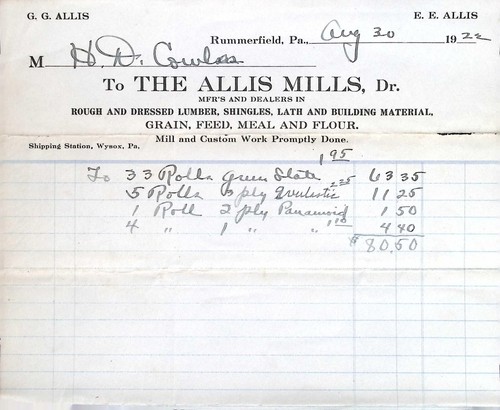 G. G. ALLIS E. E. ALLIS
Rummerfield, Pa., Aug 30 1922
M H. D. Cowles
To THE ALLIS MILLS, Dr.
MFR'S AND DEALERS IN
ROUGH AND DRESSED LUMBER, SHINGLES, LATH AND BUILDING MATERIAL,
GRAIN, FEED, MEAL AND FLOUR.
Shipping Station, Wysox, Pa. Mill and Custom Work Promptly Done.
1.95
To 33 Rolls Green Slate 63 35
5 Rolls 3 ply Everlastic 2.25 11 25
1 Roll 2 ply Panamoid 1 50
4 " 1 " " 1.10 4 40
$80.50